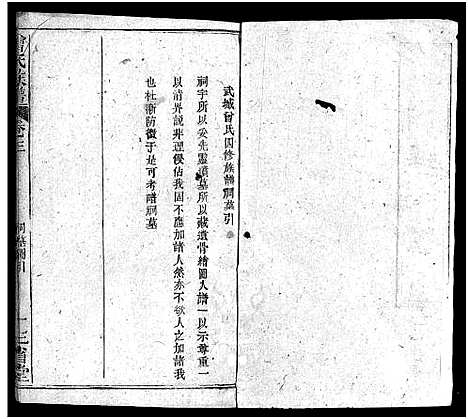 武城曾氏四修族譜祠墓引
祠宇所以妥先靈墳墓所以藏遺骨繪圖入譜一以示尊重一
以清界說非理侵佔我固不應加諸人然亦不欲人之加諸我
也杜漸防微于是可考譜祠墓
曾氏族譜
卷三
祠墓圖引
一
三省堂